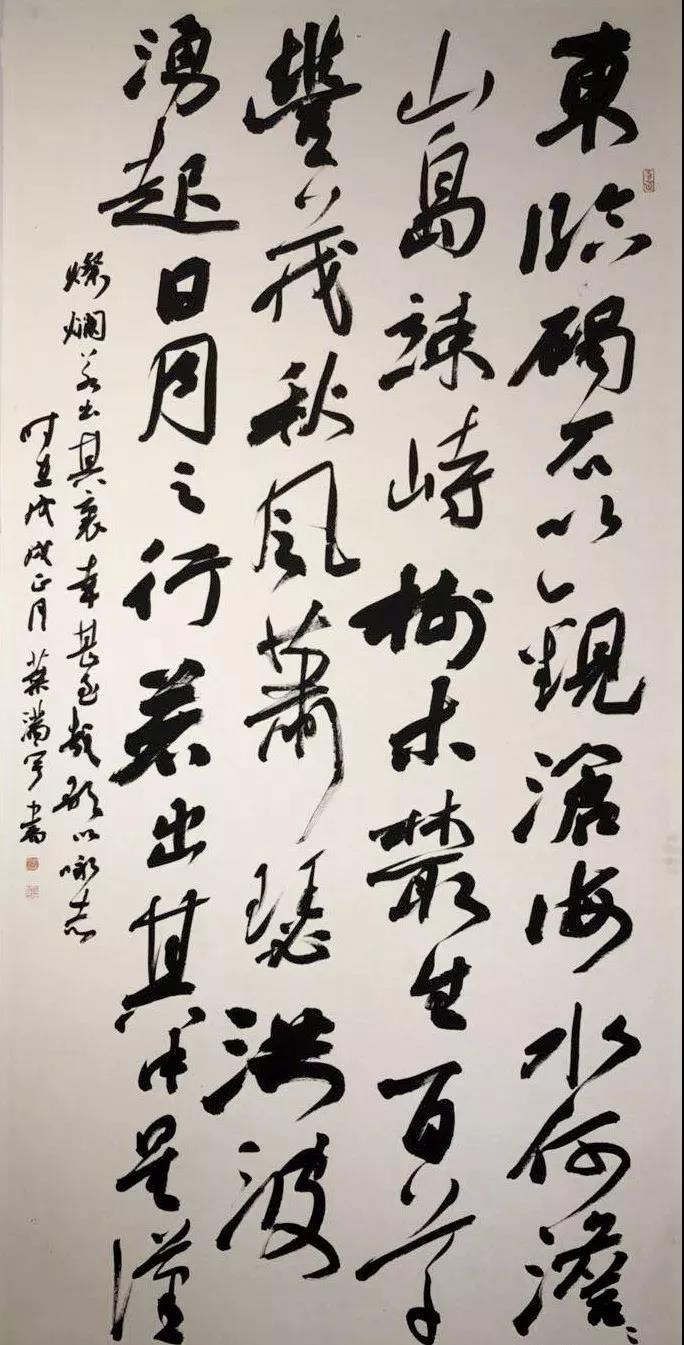 東臨碣石以觀滄海水何澹〻
山島竦峙樹木叢生百草
豐茂秋風蕭瑟洪波
湧起日月之行若出其中星漢
燦爛若出其裏幸甚至哉歌以咏志
时在戊戌正月葉滿宇書